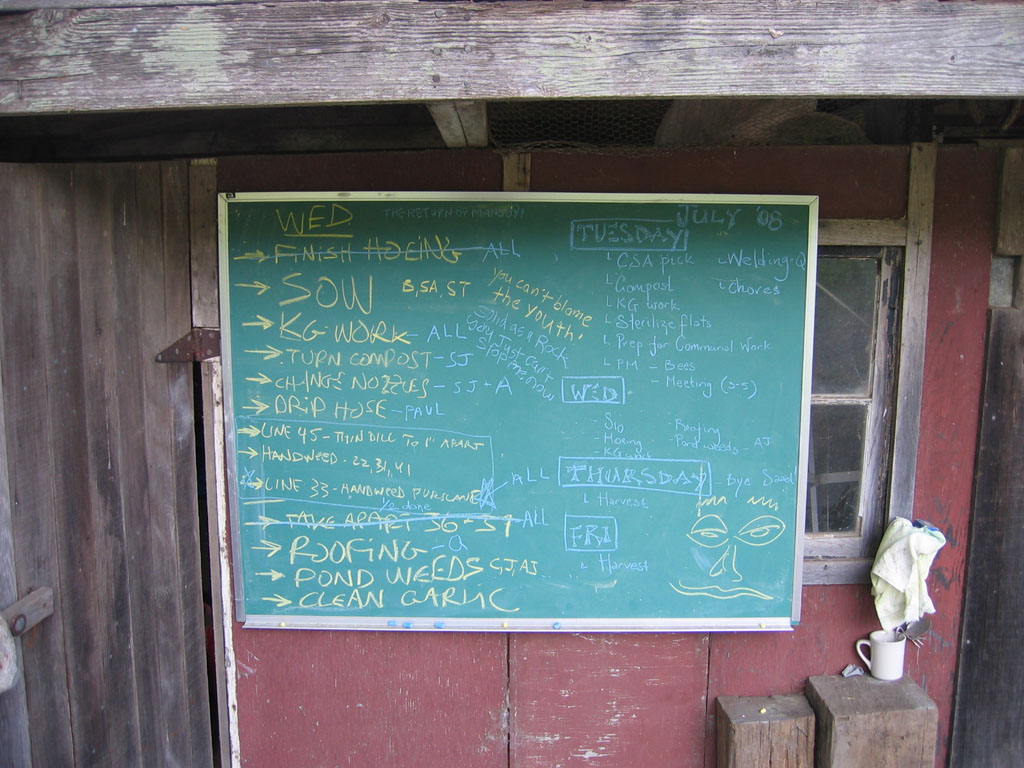 WED
THE RETURN OF MANSOY!
→ FINISH HOEING ALL
→ SOW B, SA, ST
→ KG WORK - ALL
→ TURN COMPOST - SJ
→ CHANGE NOZZLES - SJ + A
→ DRIP HOSE - PAUL
→ LINE 45 - THIN DILL TO 1" APART
→ HANDWEED - 22, 31, 41
→ LINE 33 - HANDWEED PURSLANE
ALL
1/2 done
→ TAKE APART 36 - 37 - ALL
→ ROOFING - Q
→ POND WEEDS SJ, AJ
→ CLEAN GARLIC
You can't blame
the youth.
Solid as a Rock
You Just Can't
Stop me now
JULY '08
TUESDAY
CSA pick
Compost
KG work
Sterilize flats
Prep for Communal Work
PM - Bees
- Meeting (3-5)
Welding - Q
Chores
WED
- Hoeing
- KG work
- Roofing
- Pond weeds - AJ
THURSDAY - Bye Saad
Harvest
FRI
Harvest